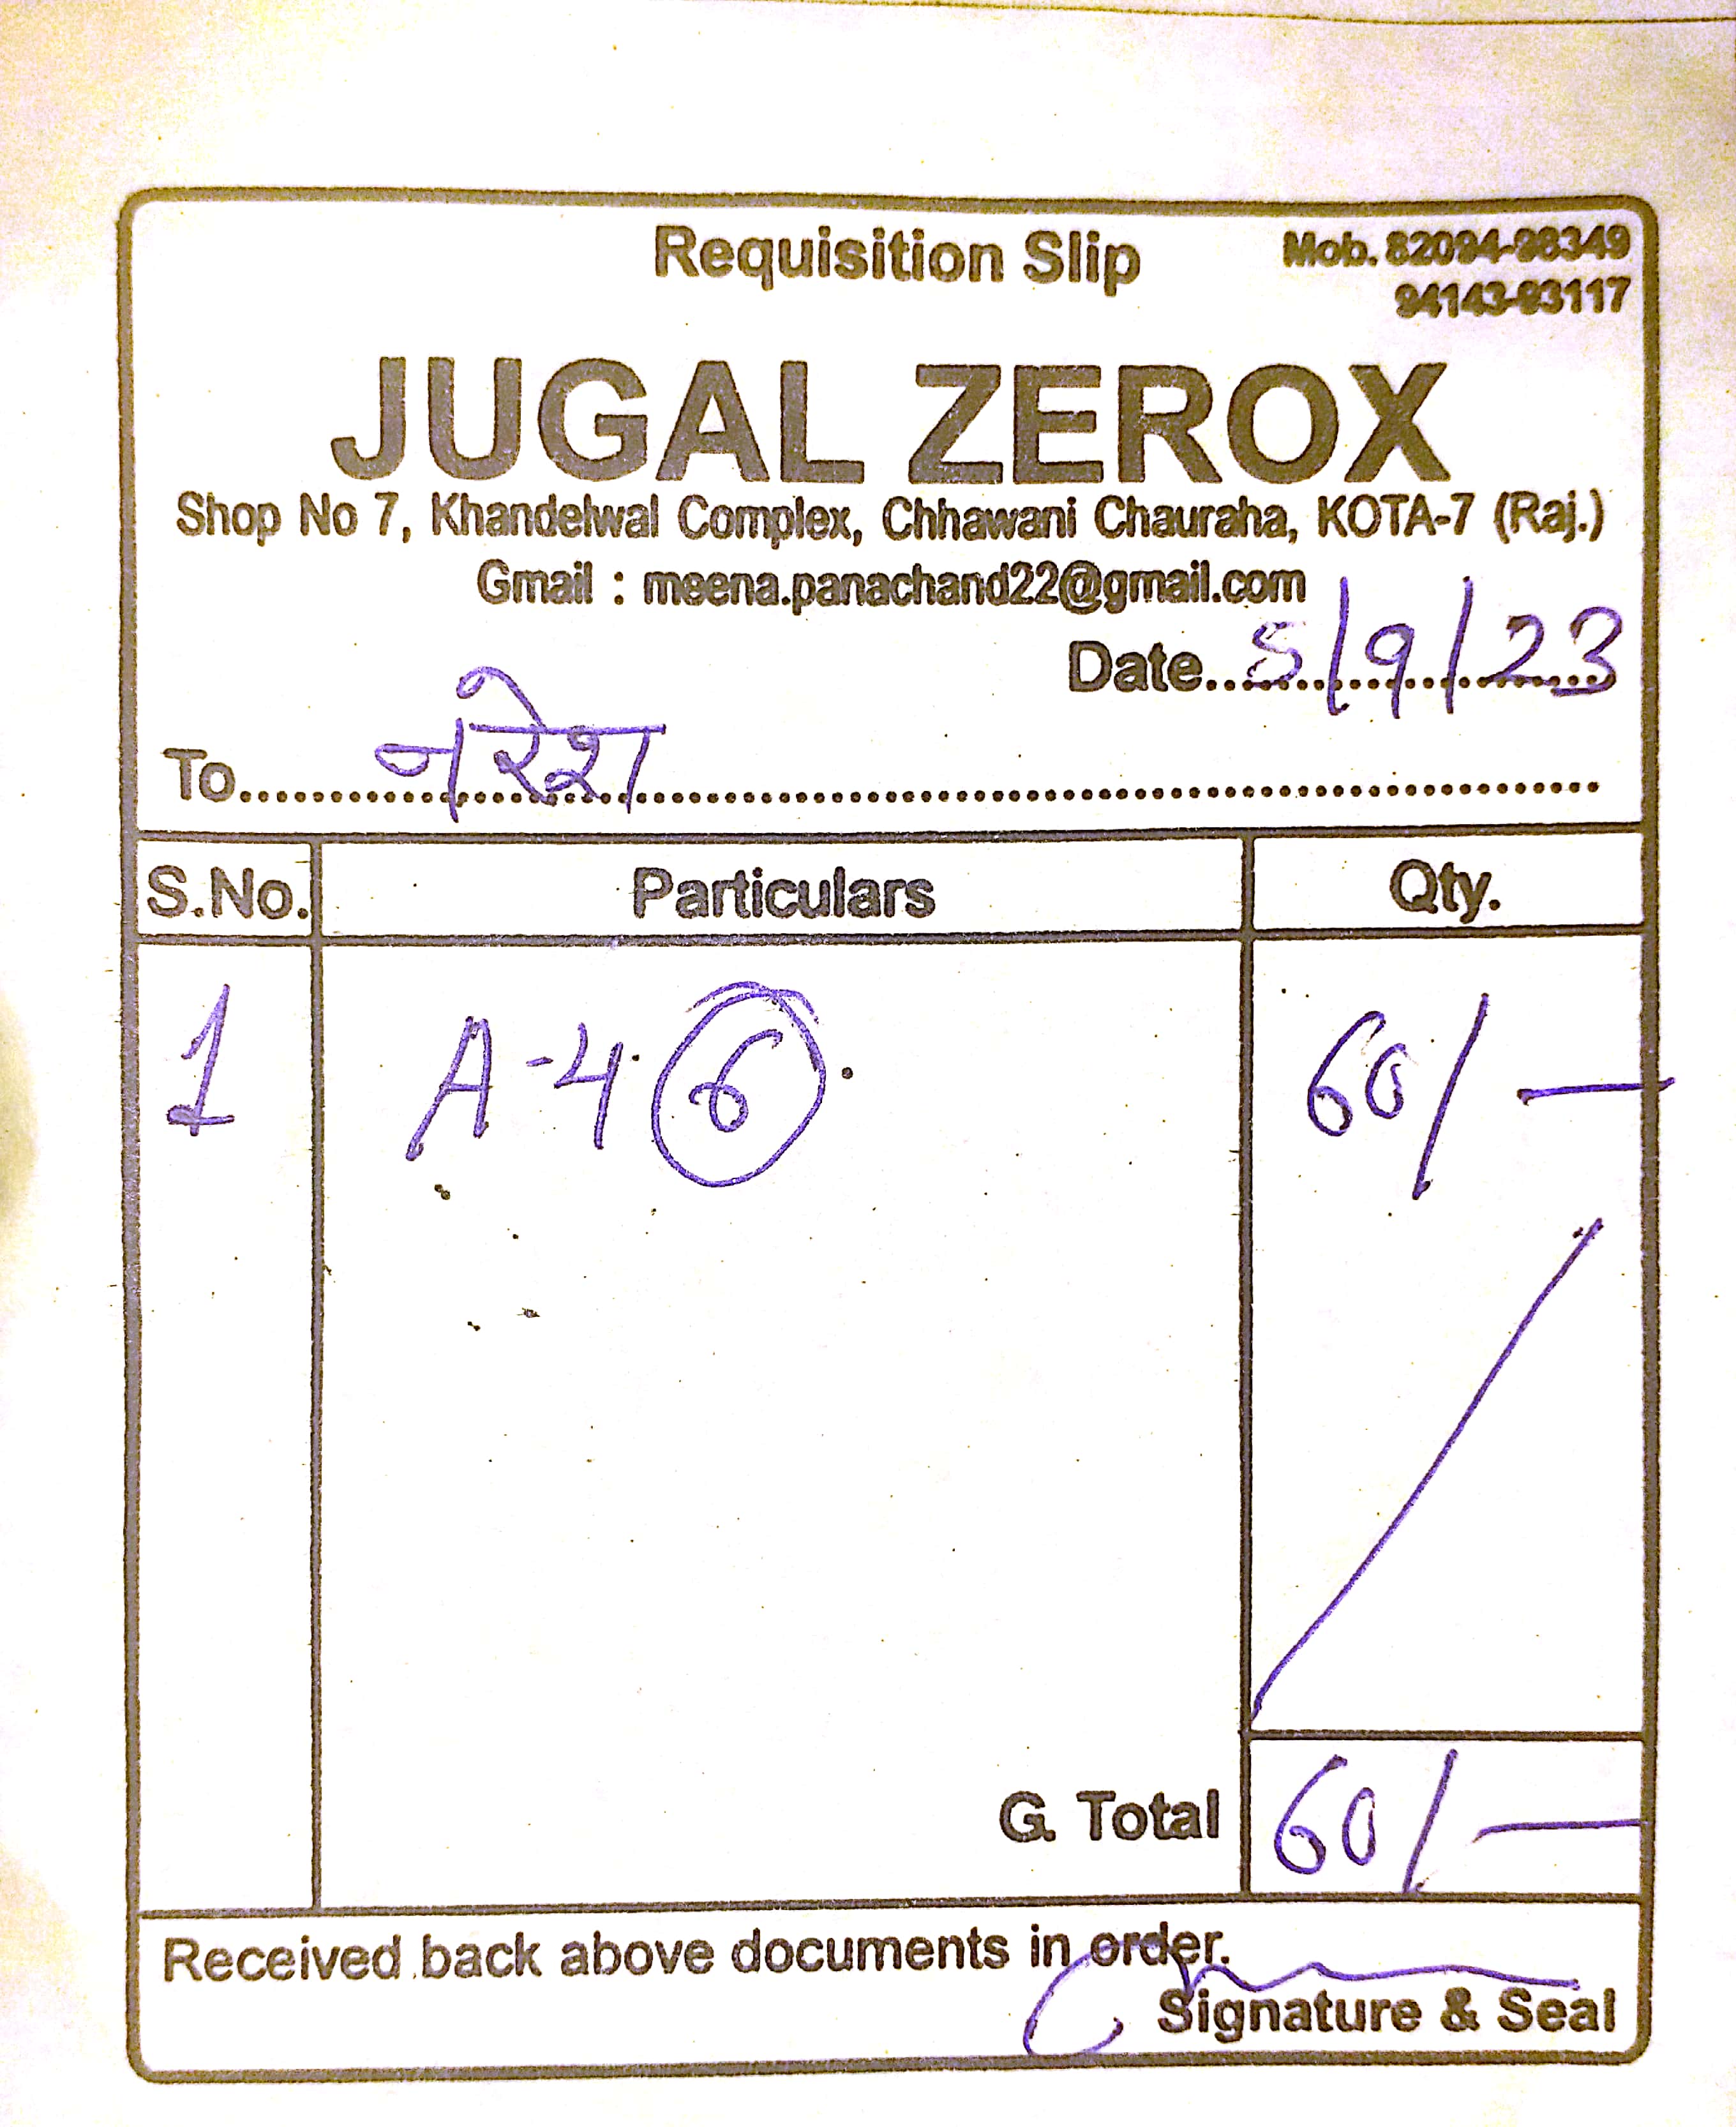 Requisition Slip
Mob. 82094-98349
94143-93117
JUGAL ZEROX
Shop No 7, Khandelwal Complex, Chhawani Chauraha, KOTA-7 (Raj.)
Gmail : meena.panachand22@gmail.com
Date 5/9/23
To नरेश
S.No. Particulars Qty.
1 A-4 6 60/-
G. Total 60/-
Received back above documents in order.
Signature & Seal